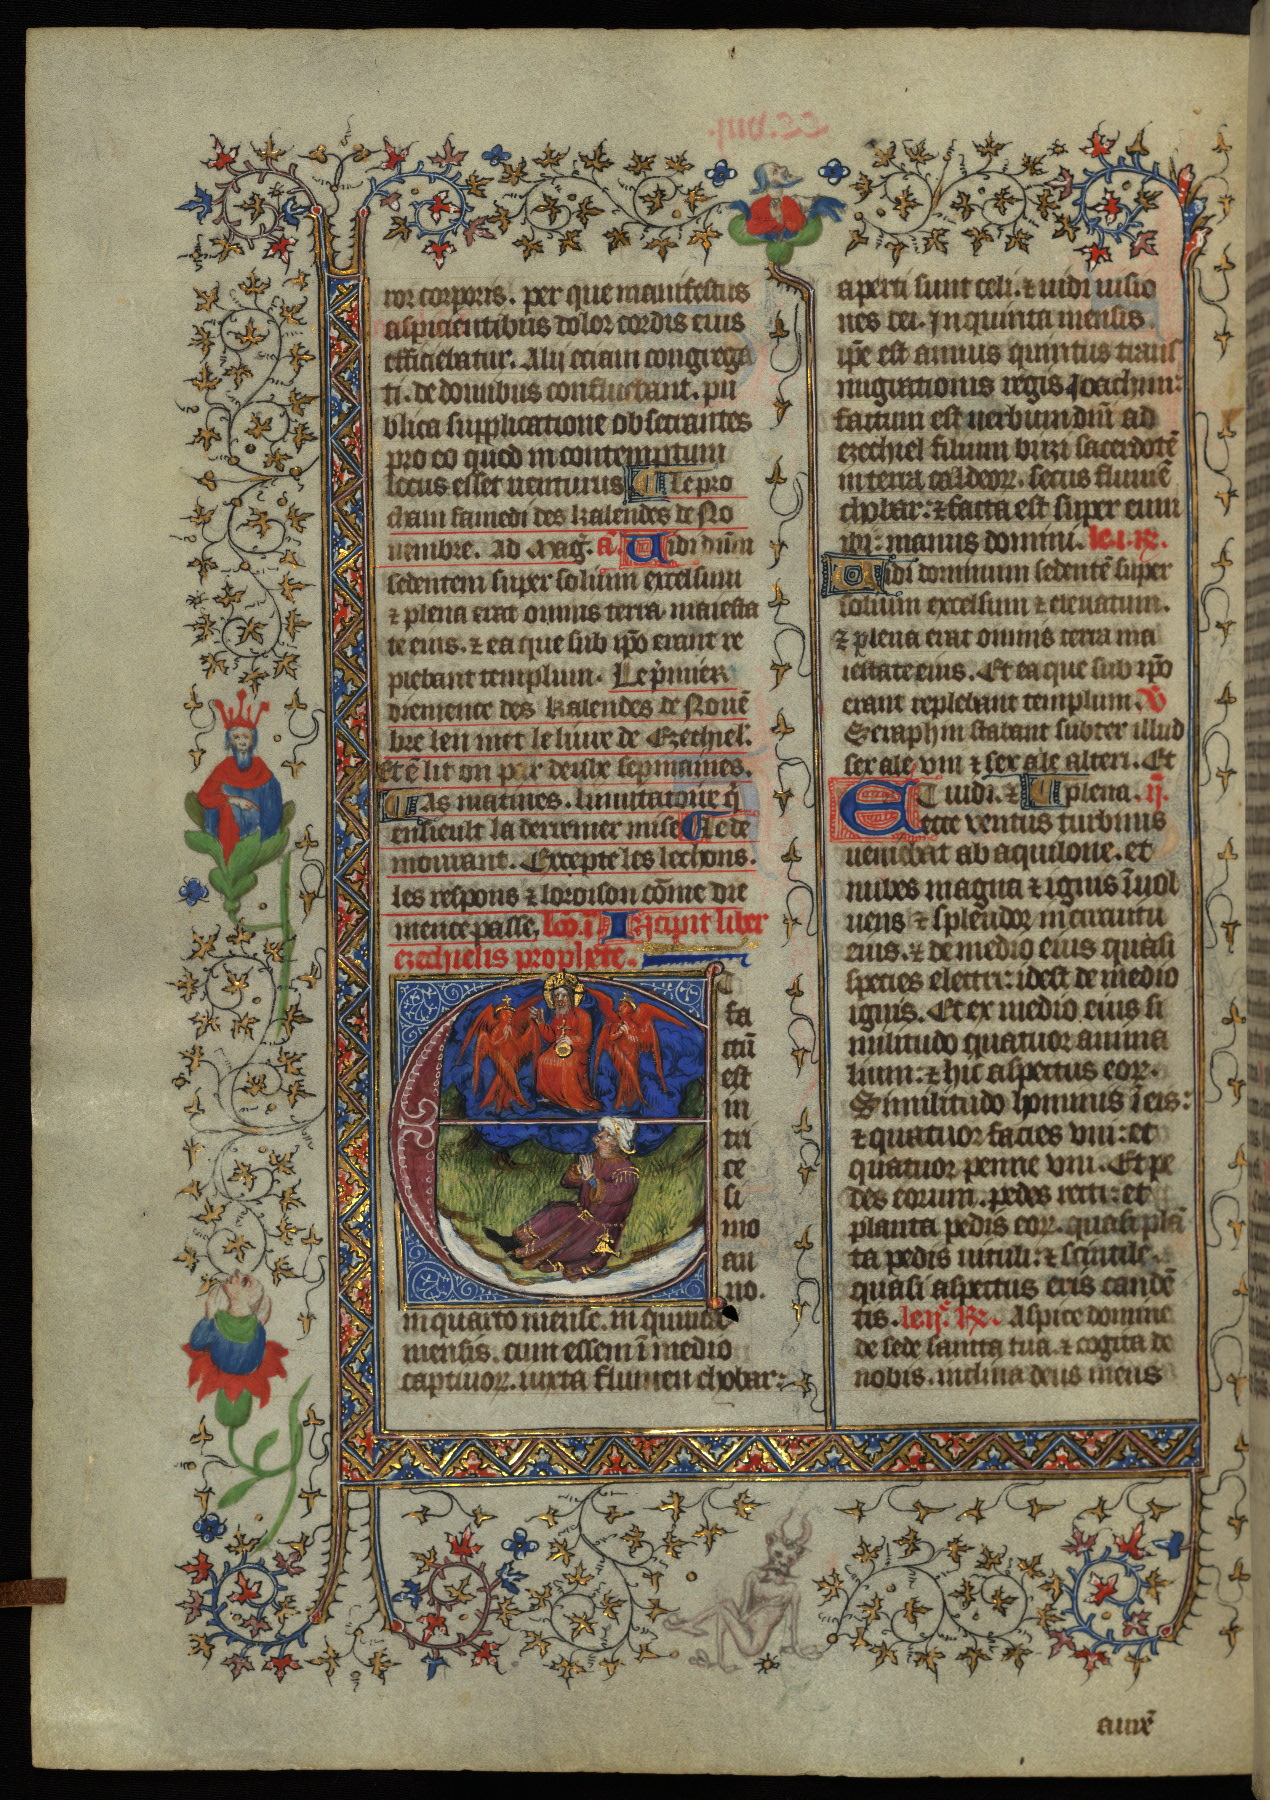 tor corporis. per que manifestus
aspicientibus dolor cordis eius
efficiebatur. Alij eciam congrega
ti. de domibus confluebant. pu
blica supplicatione obsecrantes
pro eo quod in contemptum
locus esset uenturus Le pro
chain samedi des kalendes de No
uembre. Ad Mag̃. a̅. Uidi dn̄m
sedentem super solium excelsum
⁊ plena erat omnis terra maiesta
te eius. ⁊ ea que sub ip̄o erant re
plebant templum. Le p̓mier
diemence des kalendes de Nouē
bre len met le liure de Ezechiel.
Et ē lit on par deulx sepmaines.
As matines. linuitatoire q̄
ensieult la derremer mise de
mourant. Excepte les lechons.
les respons ⁊ loroison cōme die
mence passe. lc̄o. i̅ Incipit liber
ezechielis prophete.
Et
fa
ctū
est
in
tri
ce
si
mo
an
no.
in quarto mense. in quinta
mensis. cum essem ī medio
captiuoꝝ. iuxta fluuien chobar:
aperti sunt celi. ⁊ uidi uisio
nes dei. In quinta mensis.
ip̄e est annus quintus trans
migrationis regis Joachim:
factum est uerbum dn̄i ad
ezechiel filium buzi sacerdotē
in terra caldeoꝝ. secus fluuiē
chobar: ⁊ facta est super eum
ibi: manus domini. le. i. R̃.
Uidi dominum sedentē super
solium excelsum ⁊ eleuatum.
⁊ plena erat omnis terra ma
iestate eius. Et ea que sub ip̄o
erant replebant templum. V̓
Seraphin stabant subter illud
sex ale vni ⁊ sex ale alteri. Et
Et uidi. ⁊ plena. ij.
ecce ventus turbinis
ueniebat ab aquilone. et
nubes magna ⁊ ignis īuol
uens ⁊ splendor in circuitu
eius. ⁊ de medio eius quasi
species electri: idest de medio
ignis. Et ex medio eius si
militudo quatuor anima
lium: ⁊ hic aspectus eoꝝ.
Similitudo hominis ī eis:
⁊ quatuor facies vni: et
quatuor penne vni. Et pe
des eorum. pedes recti: et
planta pedis eoꝝ. quasi plā
ta pedis uituli: ⁊ scintile
quasi aspectus eris candē
tis. le ij.ͣ R̃. Aspice domine
de sede sancta tua. ⁊ cogita de
nobis. inclina deus meus
aurē